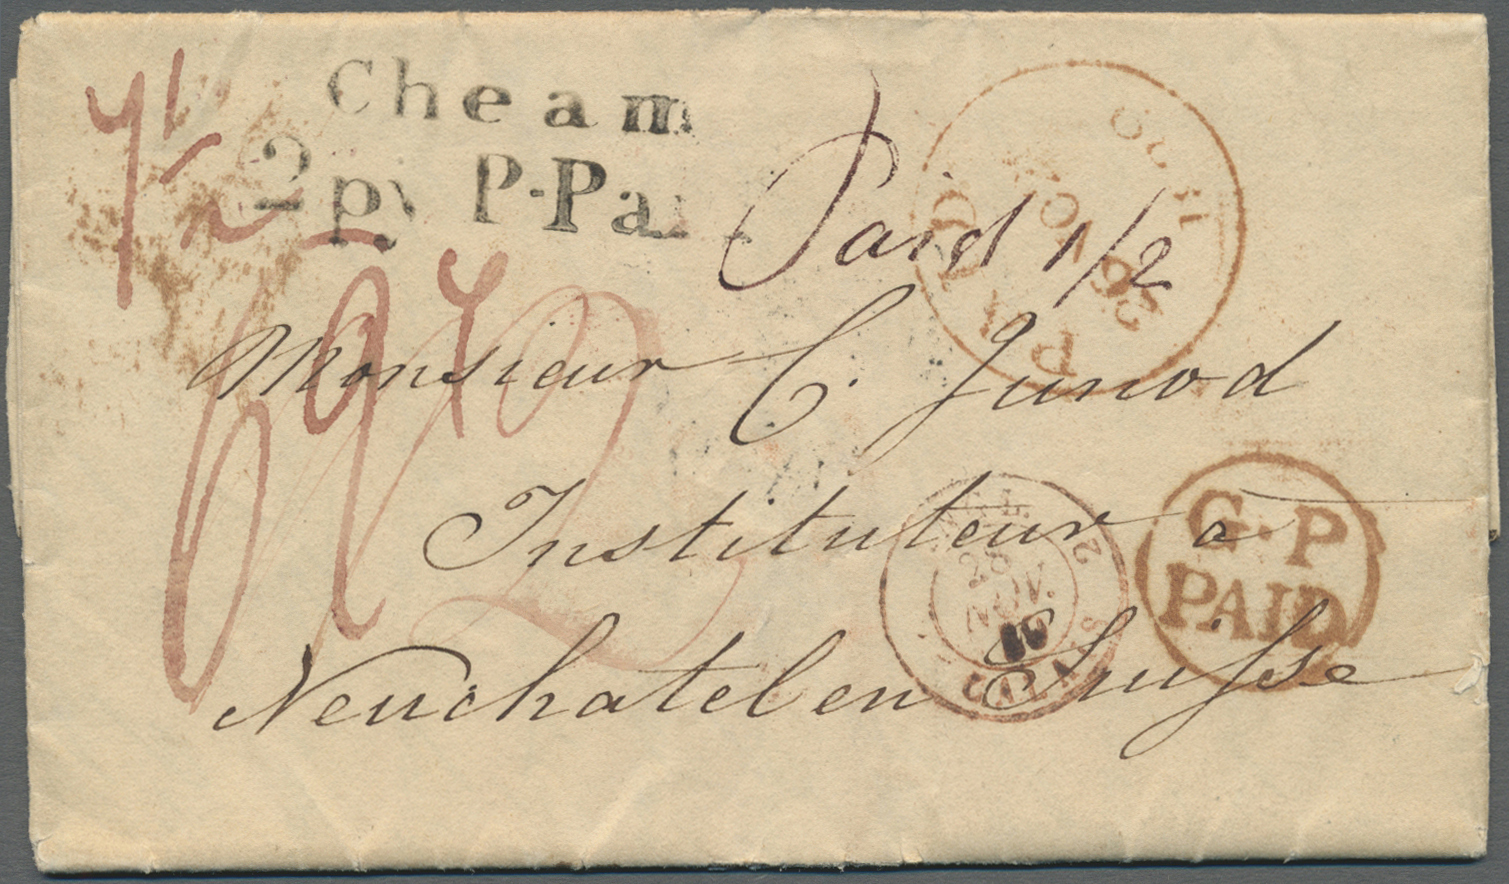 Cheam
2 py P-Pai
Paid 1/2
PAID
26 NOV
Monsieur C. Junod
Instituteur a
Neuchatel en Suisse
28
NOV.
CALAIS
2
G·P
PAID